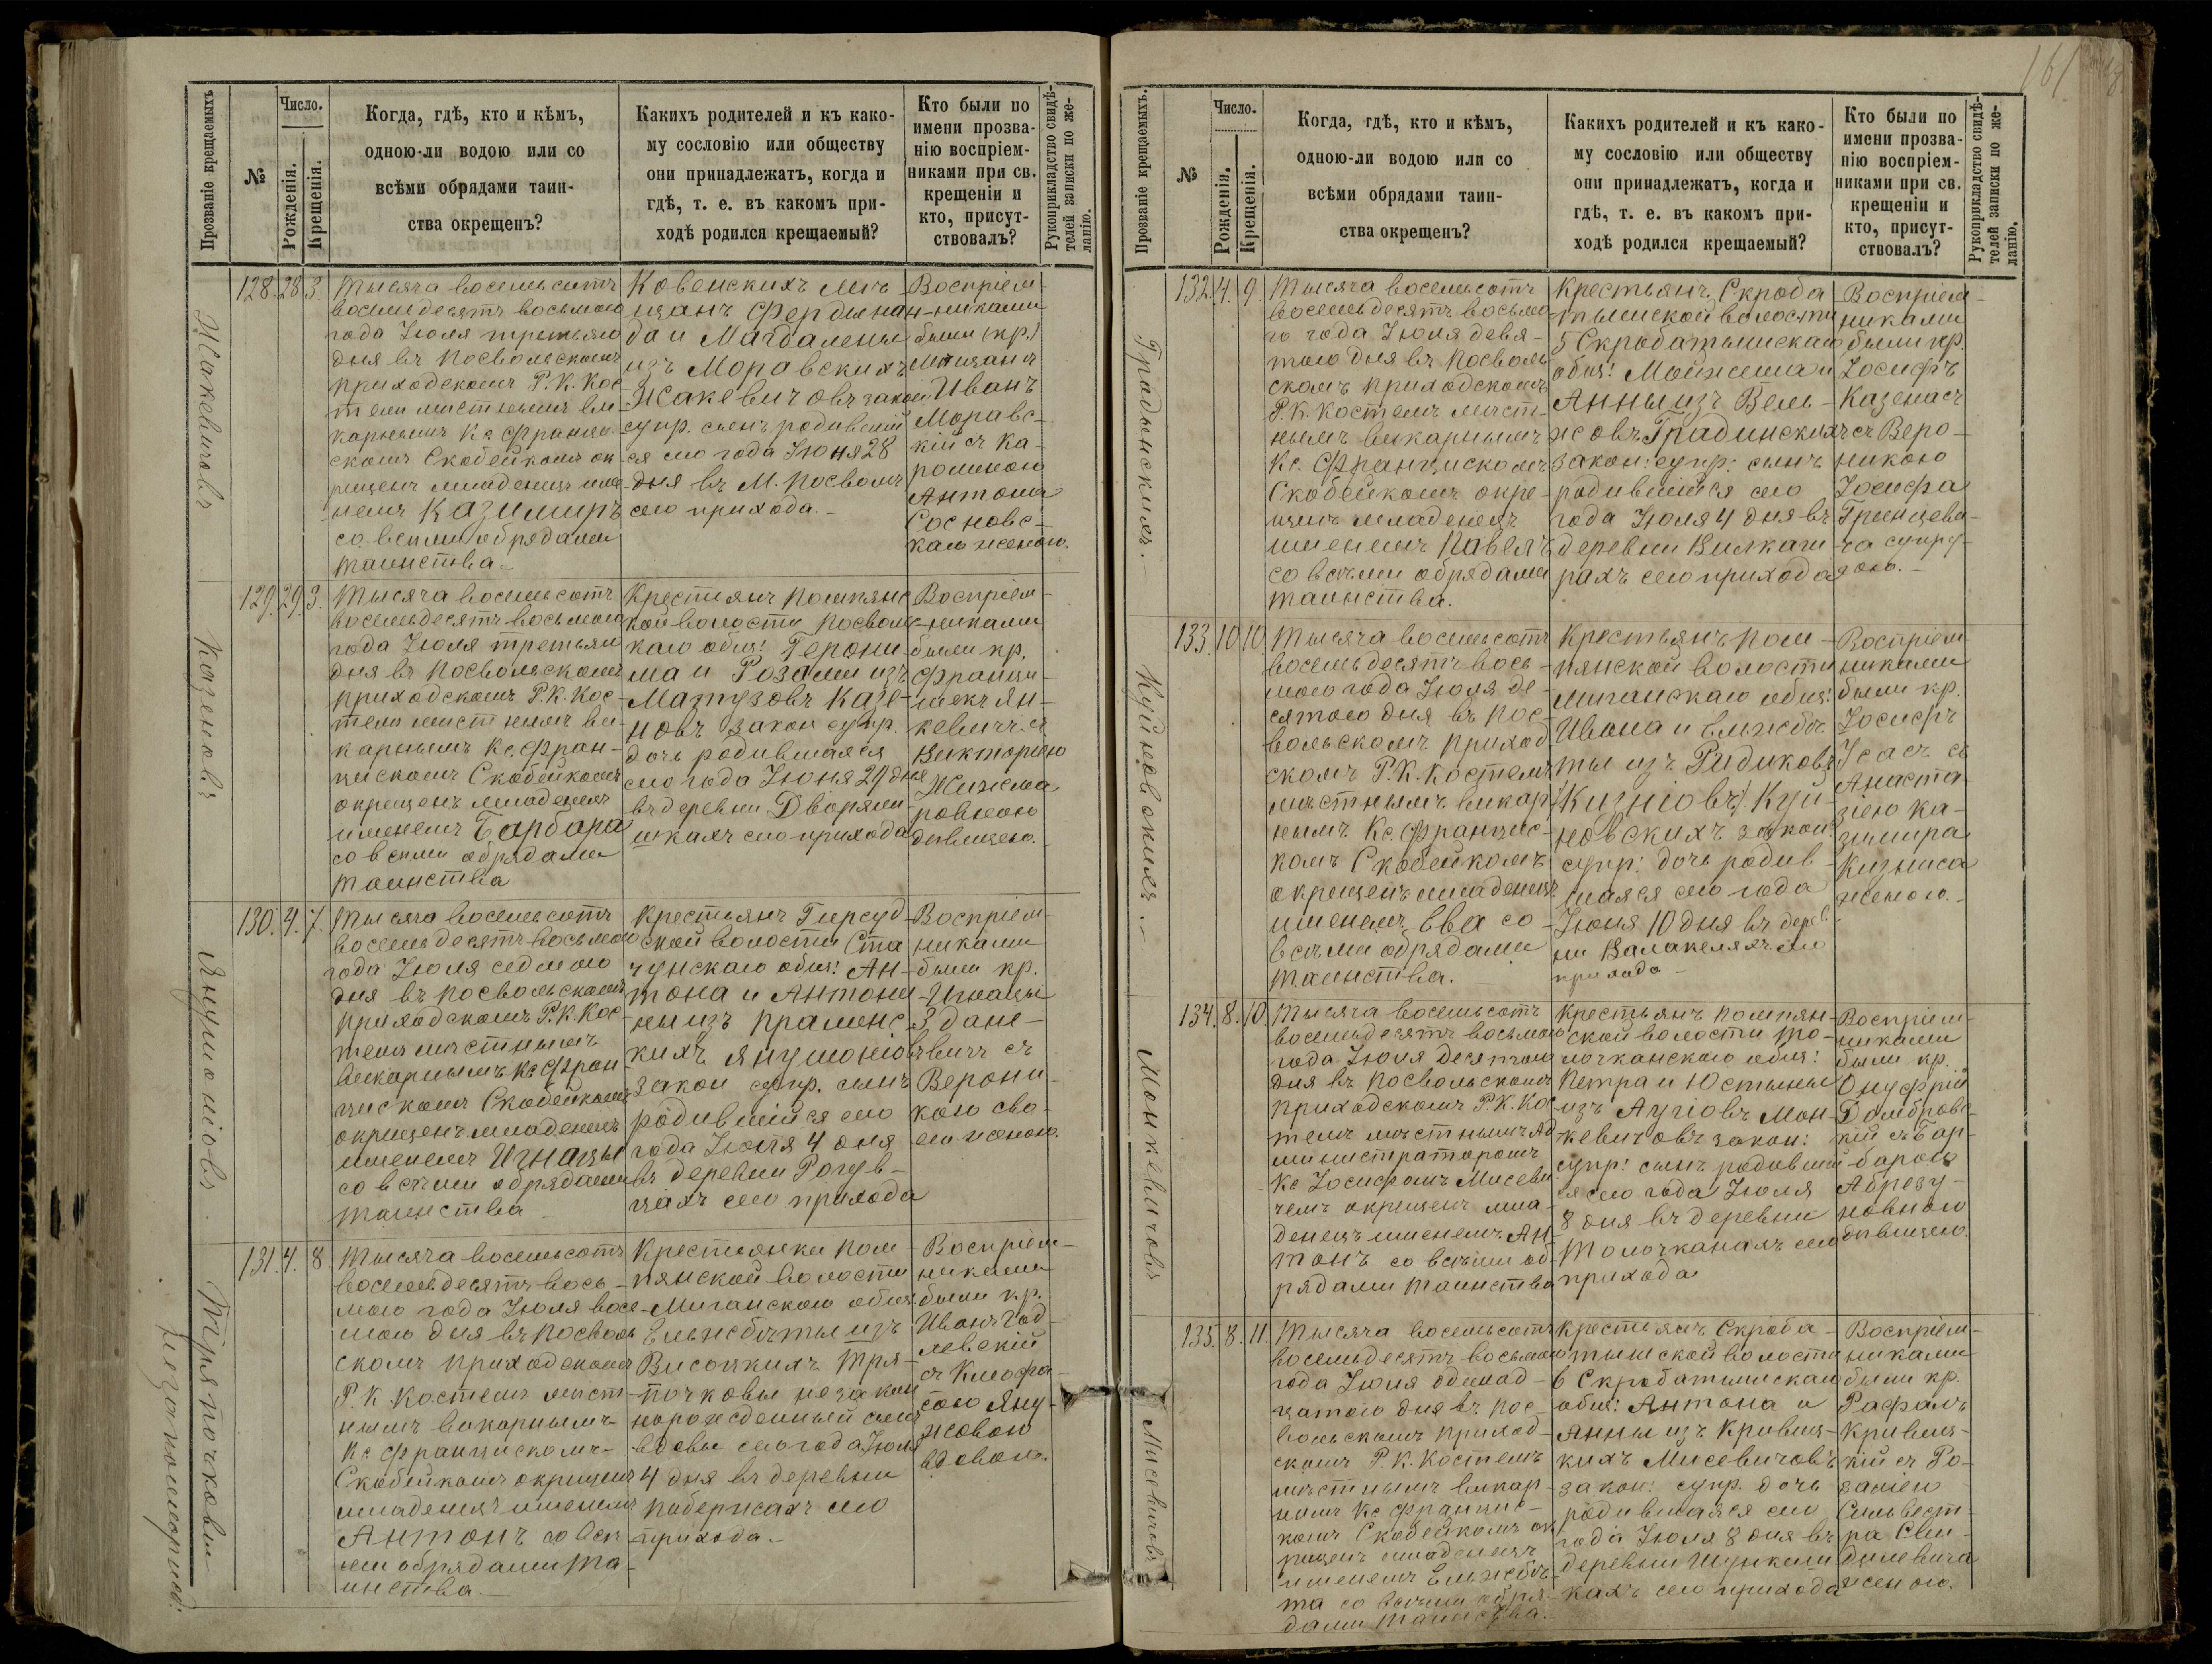 161
Прозваніе крещаемыхъ
№
Число.
Рожденія.
Крещенія.
Когда, гдѣ, кто и кѣмъ,
одною-ли водою или со
всѣми обрядами таин-
ства окрещенъ?
Какихъ родителей и къ како-
му сословію или обществу
они принадлежатъ, когда и
гдѣ, т. е. въ какомъ при-
ходѣ родился крещаемый?
Кто были по
имени прозва-
нію воспріем-
никами при св.
крещеніи и
кто, присут-
ствовалъ?
Рукоприкладство свидѣ-
телей записки по же-
ланію.
Жакевичовъ
128. 28 3.
Тысяча восемьсотъ
восемьдесятъ восьмого
года Іюля третьяго
дня въ Посвольскомъ
приходскомъ Р. К. Кос-
телѣ мѣстнымъ ви-
карнымъ Кс Франци-
скомъ Скобейкомъ ок-
рещенъ младенецъ име-
немъ Казимиръ
со всѣми обрядами
таинства.
Ковенскихъ мѣ-
щанъ Фердинан-
да и Магдалены
изъ Моравскихъ
Жакевичовъ закон.
супр. сынъ родившій
ся сего года Іюня 28
дня въ М. Посволѣ
сего прихода.
Воспріем-
никами
были (кр.)
Мѣщанъ
Иванъ
Моравс-
кій съ Ка-
ролиною
Антона
Сосновс-
каго женою.
Казеновъ
129. 29. 3.
Тысяча восемьсотъ
восемьдесятъ восьмого
года Іюля третьяго
дня въ Посвольскомъ
приходскомъ Р. К. Кос-
телѣ мѣстнымъ ви-
карнымъ Кс. Фран-
цискомъ Скобейкомъ
окрещенъ младенецъ
именемъ Барбара
со всѣми обрядами
таинства
Крестьянъ Помпянс
кой волости Посволь-
скаго общ: Герони-
ма и Розаліи изъ
Матузовъ Казе-
новъ закон супр.
дочь родившаяся
сего года Іюня 29 дня
въ деревни Дворяни-
шкахъ сего прихода
Воспріем-
никами
были кр.
Франци-
шекъ Ян-
кевичъ съ
Викторіею
Жижма
ровною
дѣвицею.
Янушоніовъ.
130. 4. 7.
Тысяча восемьсотъ
восемьдесятъ восьмого
года Іюля седмого
дня въ Посвольскомъ
приходскомъ Р. К. Кос-
телѣ мѣстнымъ
викарнымъ Кс Фран-
цискомъ Скобейкомъ
окрещенъ младенецъ
именемъ Игнацы
со всѣми обрядами
таинства
Крестьянъ Гирсуд-
ской волости Ста
чунскаго общ: Ан-
тона и Антони-
ны изъ Праменс
кихъ Янушоніовъ
закон супр. сынъ
родившійся сего
года Іюля 4 дня
въ деревни Рогув-
цахъ сего прихода
Воспріем-
никами
были кр.
Игнацы
Здане-
вичъ съ
Верони-
кою сво-
ею женою.
Тряпочковы
незаконнорожд:
131. 4. 8
Тысяча восемьсотъ
восемьдесятъ вось-
мого года Іюля вось-
мого дня въ Посволь
скомъ приходскомъ
Р. К. Костелѣ мѣст-
нымъ викарнымъ
Кс Францискомъ
Скобейкомъ окрещенъ
младенецъ именемъ
Антонъ со всѣ-
ми обрядами та-
инства.
Крестьянки Пом-
пянской волости
Миганскаго общ:
Ельжбѣты изъ
Височкихъ Тря-
почковы незакон
норожденный сынъ
вдовы сего года Іюля
4 дня въ деревни
Пабержахъ сего
прихода.
Воспріем-
никами
были кр.
Иванъ Год-
левскій
съ Клеофа-
сою Яну-
жовою
вдовою.
Прозваніе крещаемыхъ.
№
Число.
Рожденія.
Крещенія.
Когда, гдѣ, кто и кѣмъ,
одною-ли водою или со
всѣми обрядами таин-
ства окрещенъ?
Какихъ родителей и къ како-
му сословію или обществу
они принадлежатъ, когда и
гдѣ, т. е. въ какомъ при-
ходѣ родился крещаемый?
Кто были по
имени прозва-
нію воспріем-
никами при св.
крещеніи и
кто, присут-
ствовалъ?
Рукоприкладство свидѣ-
телей записки по же-
ланію.
Градынскихъ.
132. 4. 9.
Тысяча восемьсотъ
восемьдесятъ восьмо-
го года Іюля девя-
таго дня въ Посволь
скомъ приходскомъ
Р. К. Костелѣ мѣст-
нымъ викарнымъ
Кс. Францискомъ
Скобейкомъ окре-
щенъ младенецъ
именемъ Павелъ
со всѣми обрядами
таинства.
Крестьянъ Скроба
тышской волости
5 Скробатышскаго
общ: Мойжеша и
Анны изъ Вель-
жсовъ Градинскихъ
закон: супр: сынъ
родившійся сего
года Іюля 4 дня въ
деревни Вилкаш-
рахъ сего прихода
Воспріем-
никами
были кр.
Іосифъ
Казенасъ
съ Веро-
никою
Іосифа
Гринцеви-
ча супру-
гою.
Куйновскихъ.
133. 10 10
Тысяча восемьсотъ
восемьдесятъ вось-
мого года Іюля де-
сятого дня въ Пос-
вольскомъ приход
скомъ Р. К. Костелѣ
мѣстнымъ викар
нымъ Кс Францис-
комъ Скобейкомъ
окрещенъ младенецъ
именемъ Ева со
всѣми обрядами
таинства.
Крестьянъ Пом-
пянской волости
Миганскаго общ:
Ивана и Ельжбѣ
ты изъ Ридиковъ
(Кизніовъ) Куй-
новскихъ закон
супр: дочь родив
шаяся сего года
Іюня 10 дня въ дерев
ни Валакеляхъ сего
прихода
Воспріем
никами
были кр.
Іосифъ
Усасъ съ
Анаста
зіею Ка-
зимира
Кизниса
женою.
Монкевичовъ
134. 8. 10.
Тысяча восемьсотъ
восемьдесятъ восьмого
года Іюля десятого
дня въ Посвольскомъ
приходскомъ Р. К. Кос
телѣ мѣстнымъ Ад
министраторомъ
Кс Іосифомъ Мисеви-
чемъ окрещенъ мла-
денецъ именемъ Ан-
тонъ со всѣми об-
рядами таинства
Крестьянъ Помпян-
ской волости То-
лочканскаго общ:
Петра и Юстыны
изъ Аугіовъ Мон-
кевичовъ закон:
супр: сынъ родивший
ся сего года Іюля
8 дня въ деревни
Толочканахъ сего
прихода
Воспріем-
никами
были кр.
Онуфрій
Домбровс-
кій съ Бар-
барою
Абрезу-
новною
дѣвицею.
Мисевичовъ
135. 8. 11.
Тысяча восемьсотъ
восемьдесятъ восьмого
года Іюля одинад-
цатого дня въ Пос-
вольскомъ приход-
скомъ Р. К. Костелѣ
мѣстнымъ викар-
нымъ Кс Францис-
комъ Скобейкомъ ок
рещенъ младенецъ
именемъ Ельжбѣ-
та со всѣми обря-
дами таинства.
Крестьянъ Скроба-
тышской волости
6 Скробатышскаго
общ: Антона и
Анны изъ Кривиц-
кихъ Мисевичовъ
закон: супр. дочь
родившаяся сего
года Іюля 8 дня въ
деревни Шункели-
кахъ сего прихода
Воспріем-
никами
были кр.
Рафалъ
Кривиц-
кій съ Ро-
заліею
Сильвест-
ра Сви-
дилевича
женою.